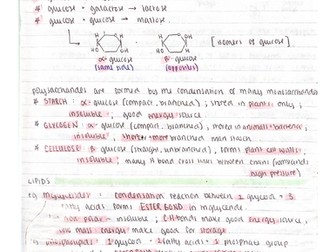 * glucose + galactose → lactose
* glucose + glucose → maltose.
HC OH
HO OH
[isomers of glucose]
α-glucose β-glucose
(same side) (opposites)
polysaccharides are formed by the condensation of many monosaccharides
* STARCH : α-glucose (compact, branched) ; stored in plants only ;
insoluble ; good energy source
* GLYCOGEN : α-glucose (compact, branched) ; stored in animals + bacteria ;
insoluble ; shorter + more branched than starch
* CELLULOSE : β glucose (straight, unbranched) , forms plant cell walls ;
insoluble ; many H bond cross links between chains (withstand
high pressure)
LIPIDS
eg triglycerides : condensation reaction between 1 glycerol + 3
fatty acids forms ESTER BOND in triglyceride.
non polar - insoluble ; C-H bonds make good energy source ;
low mass : energy make good for storage
phospholipids : 1 glycerol + 2 fatty acids + 1 phosphate group